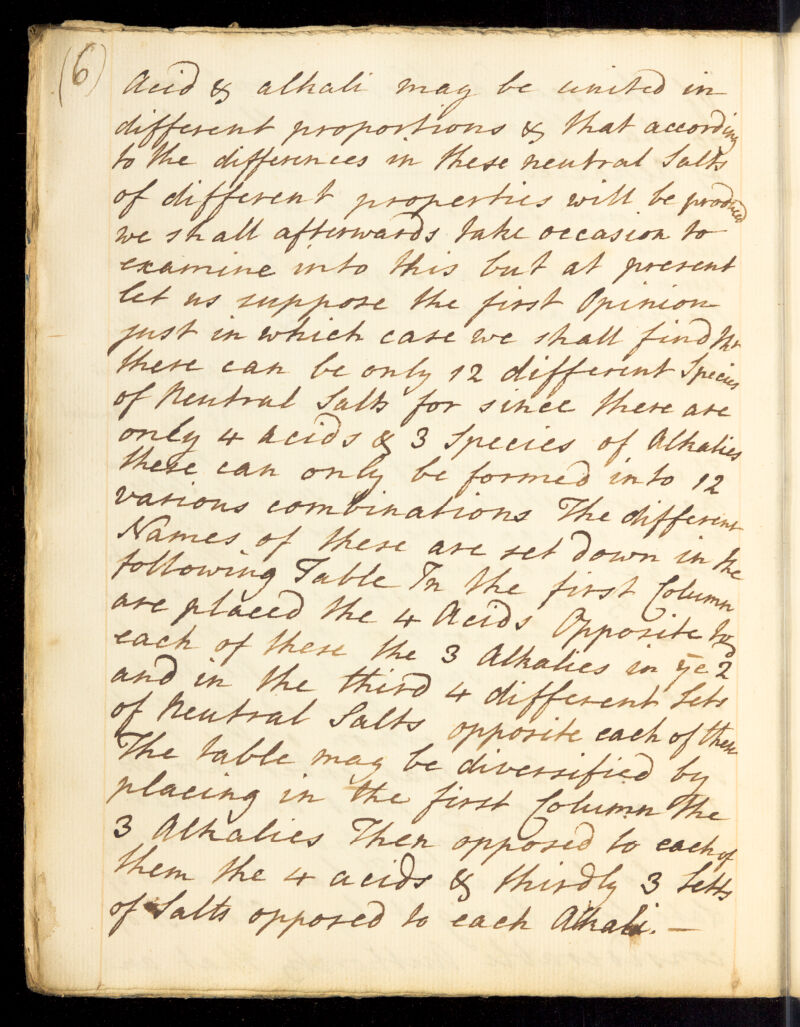 (6)
Acid & alkali may be united in
different proportions & that according
to the differences in these neutral Salts
of different properties will be produced
we shall afterwards take occasion to
examine into this but at present
let us suppose the first Opinion
just in which case we shall find tht
there can be only 12 different Species
of Neutral Salts for since there are
only 4 acids & 3 Species of Alkalies
these can only be formed into 12
various combinations The different
Names of these are set down in the
following Table In the first Column
are placed the 4 Acids Opposite to
each of these the 3 Alkalies in ye 2d
and in the third 4 different Sets
of Neutral Salts opposite each of these
The table may be diversified by
placing in the first Column the
3 Alkalies Then opposed to each of
them the 4 acids & thirdly 3 Setts
of Salts opposed to each Alkali. —